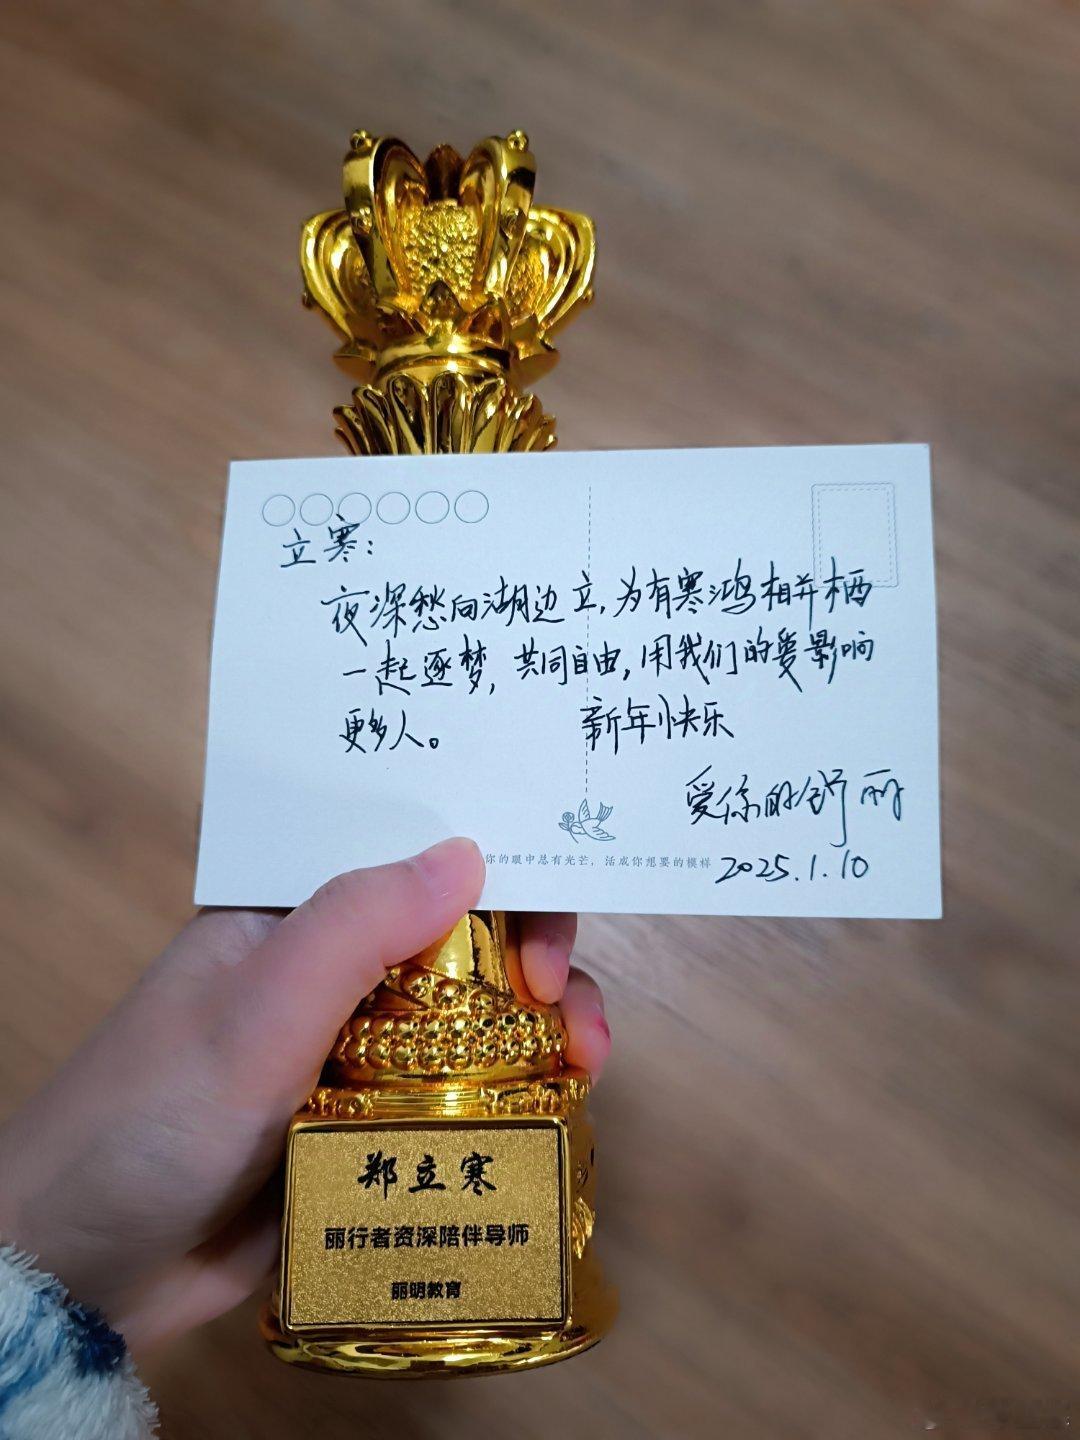 立寒：
夜深愁向湖边立，为有寒鸿相并栖
一起逐梦，共同自由，用我们的爱影响
更多人。 新年快乐
爱你的舒丽
你的眼中总有光芒，活成你想要的模样
2025.1.10
郑立寒
丽行者资深陪伴导师
丽明教育